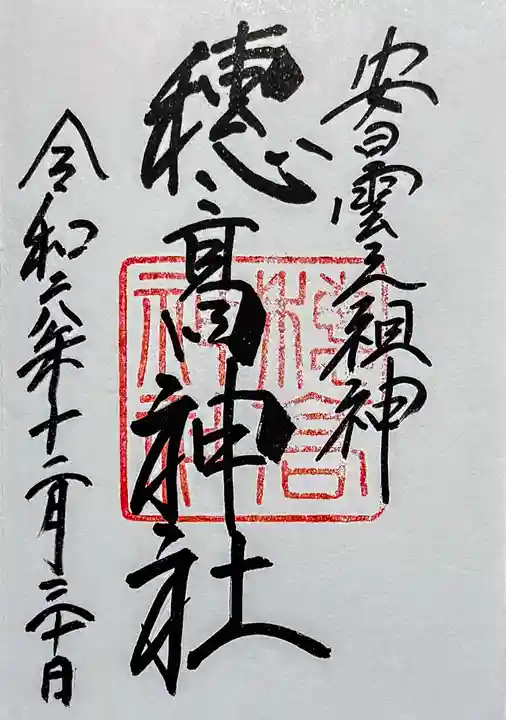 安曇之祖神
穂髙神社
令和六年十二月三十日
穂高
神社